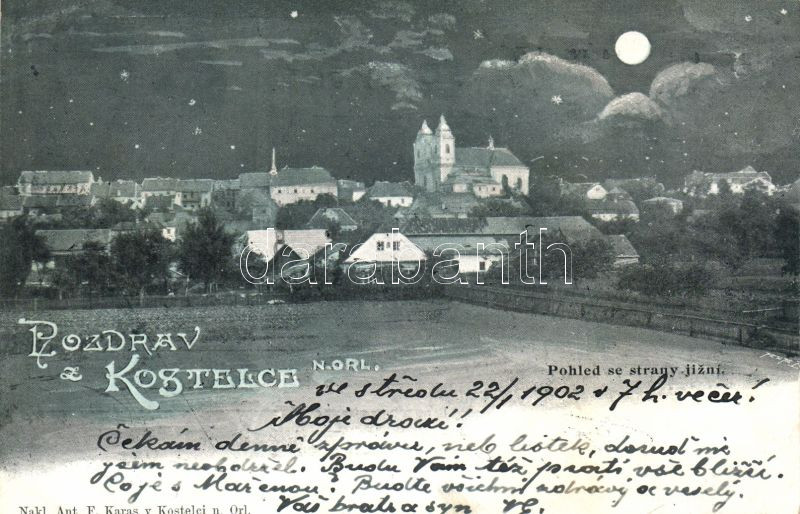 darabanth
POZDRAV
z KOSTELCE N. ORL.
Pohled se strany jižní.
ve středu 22/1 1902 v 7 h. večer!
Moji drazí!!
Čekám denně zprávu, neb lístek, dosud
jsem neobdržel. Budu Vám též psáti blíží.
Co je s Mařenou? Buďte všichni zdrávi a veselý.
Váš bratr a syn
Nakl. Ant. F. Karas v Kostelci n. Orl.